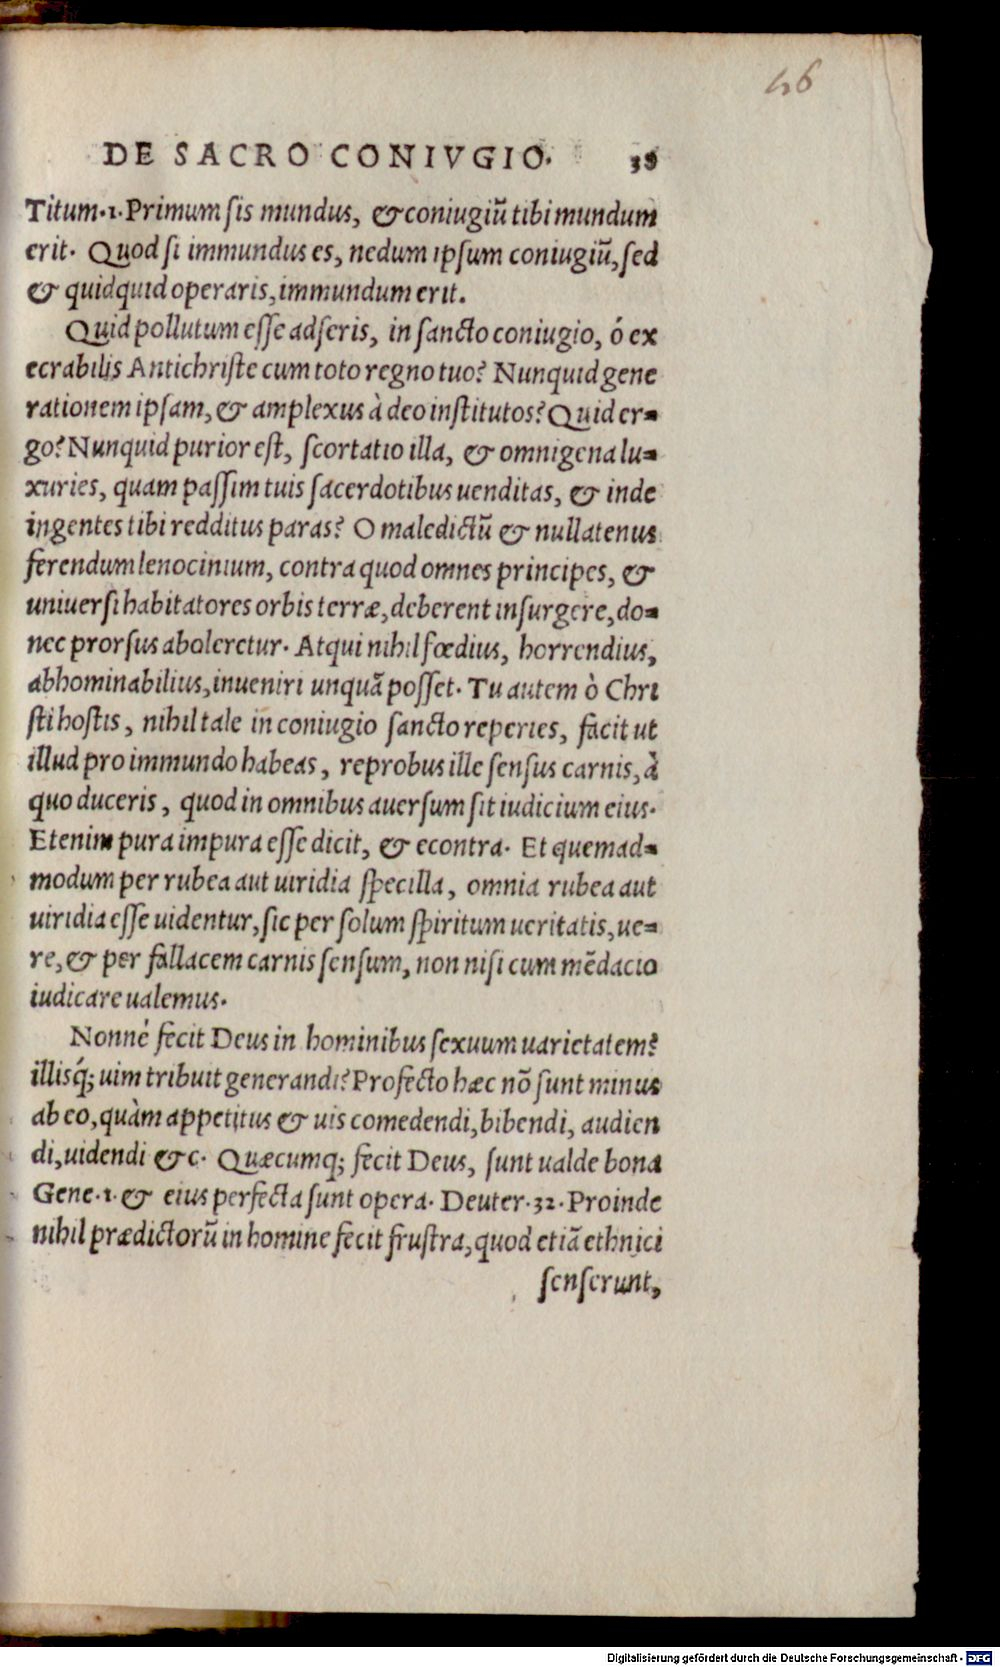 46
DE SACRO CONIVGIO. 38
Titum.1. Primum ſis mundus, & coniugiũ tibi mundum
erit. Quod ſi immundus es, nedum ipſum coniugiũ, ſed
& quidquid operaris, immundum erit.
Quid pollutum eſſe adſeris, in ſancto coniugio, ó ex
ecrabilis Antichriſte cum toto regno tuo? Nunquid gene
rationem ipſam, & amplexus à deo inſtitutos? Quid er-
go? Nunquid purior eſt, ſcortatio illa, & omnigena lu-
xuries, quam paſſim tuis ſacerdotibus uenditas, & inde
ingentes tibi redditus paras? O maledictũ & nullatenus
ferendum lenocinium, contra quod omnes principes, &
uniuerſi habitatores orbis terræ, deberent inſurgere, do-
nec prorſus aboleretur. Atqui nihil fœdius, horrendius,
abhominabilius, inueniri unquã poſſet. Tu autem ò Chri
ſti hoſtis, nihil tale in coniugio ſancto reperies, facit ut
illud pro immundo habeas, reprobus ille ſenſus carnis, à
quo duceris, quod in omnibus auerſum ſit iudicium eius.
Etenim pura impura eſſe dicit, & econtra. Et quemad-
modum per rubea aut uiridia ſpecilla, omnia rubea aut
uiridia eſſe uidentur, ſic per ſolum ſpiritum ueritatis, ue-
re, & per fallacem carnis ſenſum, non niſi cum mẽdacio
iudicare ualemus.
Nonné fecit Deus in hominibus ſexuum uarietatem?
illisq́; uim tribuit generandi? Profecto hæc nõ ſunt minus
ab eo, quàm appetitus & uis comedendi, bibendi, audien
di, uidendi &c. Quæcumq; fecit Deus, ſunt ualde bona
Gene.1. & eius perfecta ſunt opera. Deuter.32. Proinde
nihil prædictorũ in homine fecit fruſtra, quod etiã ethnici
ſenſerunt,
Digitalisierung gefördert durch die Deutsche Forschungsgemeinschaft - DFG